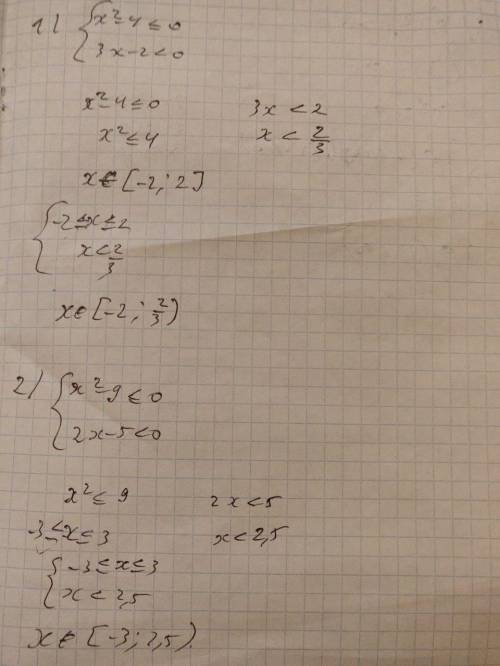 1) { x² - 4 ≤ 0
3x - 2 < 0
x² - 4 ≤ 0 3x < 2
x² ≤ 4 x < 2/3
x ∈ [-2; 2]
{ -2 ≤ x ≤ 2
x < 2/3
x ∈ [-2; 2/3)
2) { x² - 9 ≤ 0
2x - 5 < 0
x² ≤ 9 2x < 5
-3 ≤ x ≤ 3 x < 2,5
{ -3 ≤ x ≤ 3
x < 2,5
x ∈ [-3; 2,5).